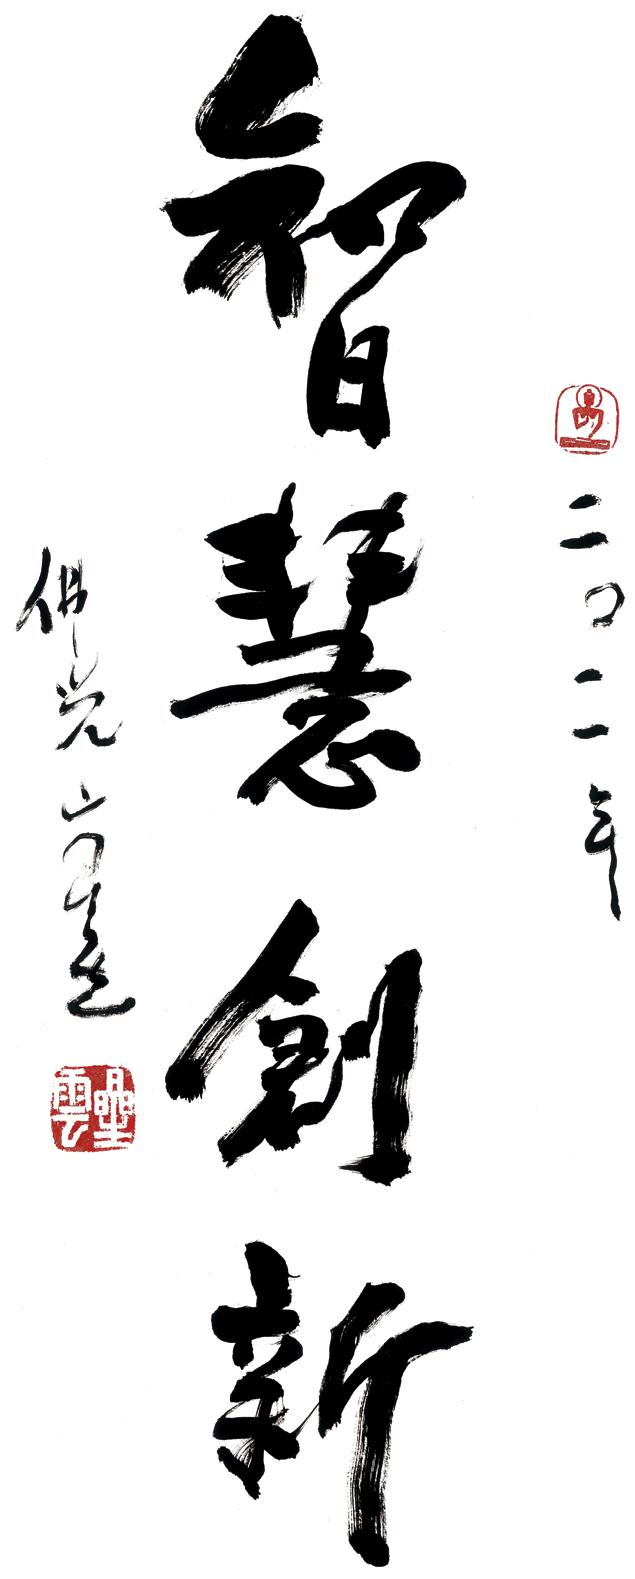 二〇二一年
智慧創新
佛光山星雲
星雲